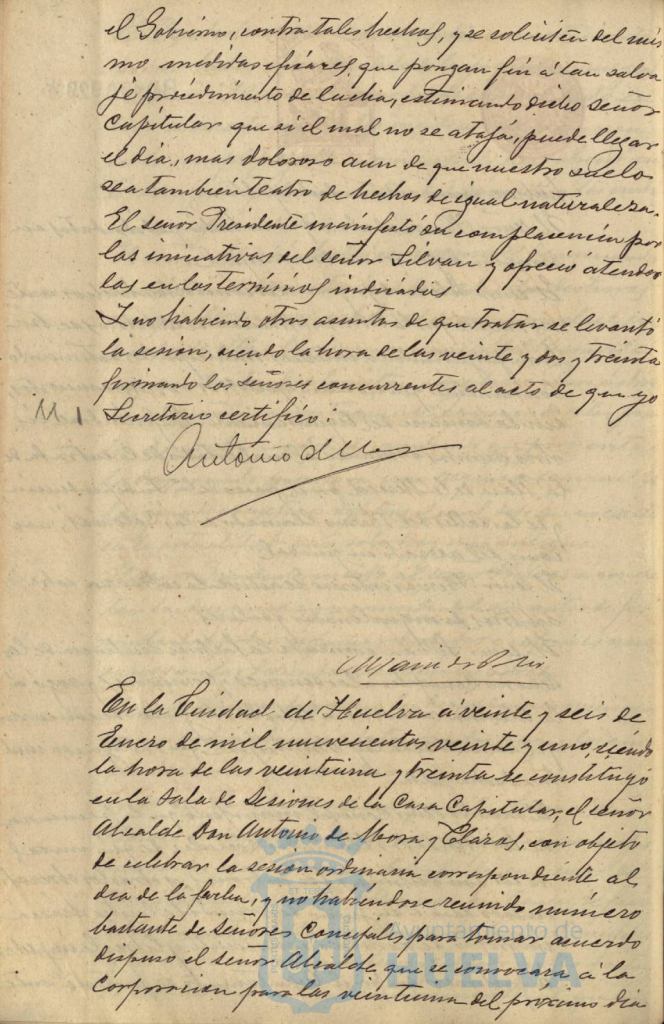 el Gobierno, contra tales hechos, y se soliciten del mis
mo medidas eficaces, que pongan fin á tan salva
je procedimiento de lucha, estimando dicho señor
Capitular que si el mal no se ataja, puede llegar
el dia, mas doloroso aun de que nuestro suelo
sea tambien teatro de hechos de igual naturaleza.
El señor Presidente manifestó su complacencia por
las iniciativas del señor Silvan y ofreció atender
las en los terminos indicados
Y no habiendo otros asuntos de que tratar se levantó
la sesion, siendo la hora de las veinte y dos y treinta
firmando los señores concurrentes al acto de que yo
Secretario certifico:
Antonio de Mora
En la Ciudad de Huelva á veinte y seis de
Enero de mil nuevecientos veinte y uno, siendo
la hora de las veintiuna y treinta se constituyó
en la Sala de Sesiones de la Casa Capitular, el señor
Alcalde Don Antonio de Mora y Claros, con objeto
de celebrar la sesion ordinaria correspondiente al
dia de la fecha, y no habiendose reunido número
bastante de Señores Concejales para tomar acuerdo
dispuso el señor Alcalde que se convocara á la
Corporacion para las veintiuna del próximo dia
Ayuntamiento de
HUELVA